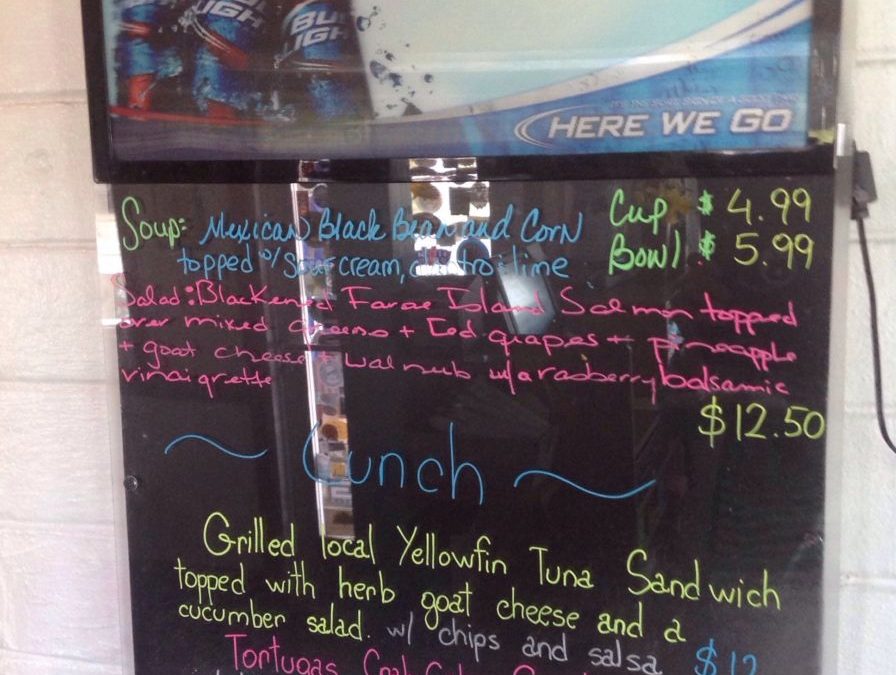 BUD LIGHT
HERE WE GO
Soup: Mexican Black Bean and Corn Cup $ 4.99
topped w/ sour cream, cilantro + lime Bowl $ 5.99
Salad: Blackened Faroe Island Salmon topped
over mixed greens + Red grapes + pineapple
+ goat cheese + walnuts w/a rasberry balsamic
vinaigrette
$12.50
~ Lunch ~
Grilled local Yellowfin Tuna Sandwich
topped with herb goat cheese and a
cucumber salad. w/ chips and salsa $12
Tortugas